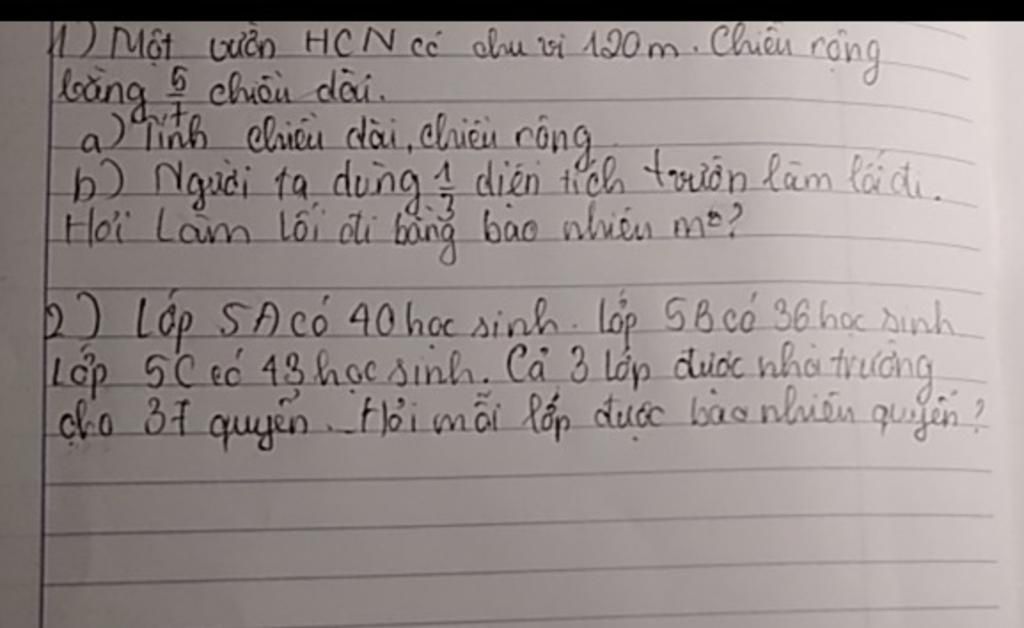 1) Một vườn HCN có chu vi 120m. Chiều rộng
bằng 5/7 chiều dài.
a) Tính chiều dài, chiều rộng
b) Người ta dùng 1/3 diện tích vườn làm lối đi.
Hỏi Làm lối đi bằng bao nhiêu m²?
2) Lớp 5A có 40 học sinh. lớp 5B có 36 học sinh
Lớp 5C có 43 học sinh. Cả 3 lớp được nhà trường
cho 37 quyển. Hỏi mỗi lớp được bao nhiêu quyển?